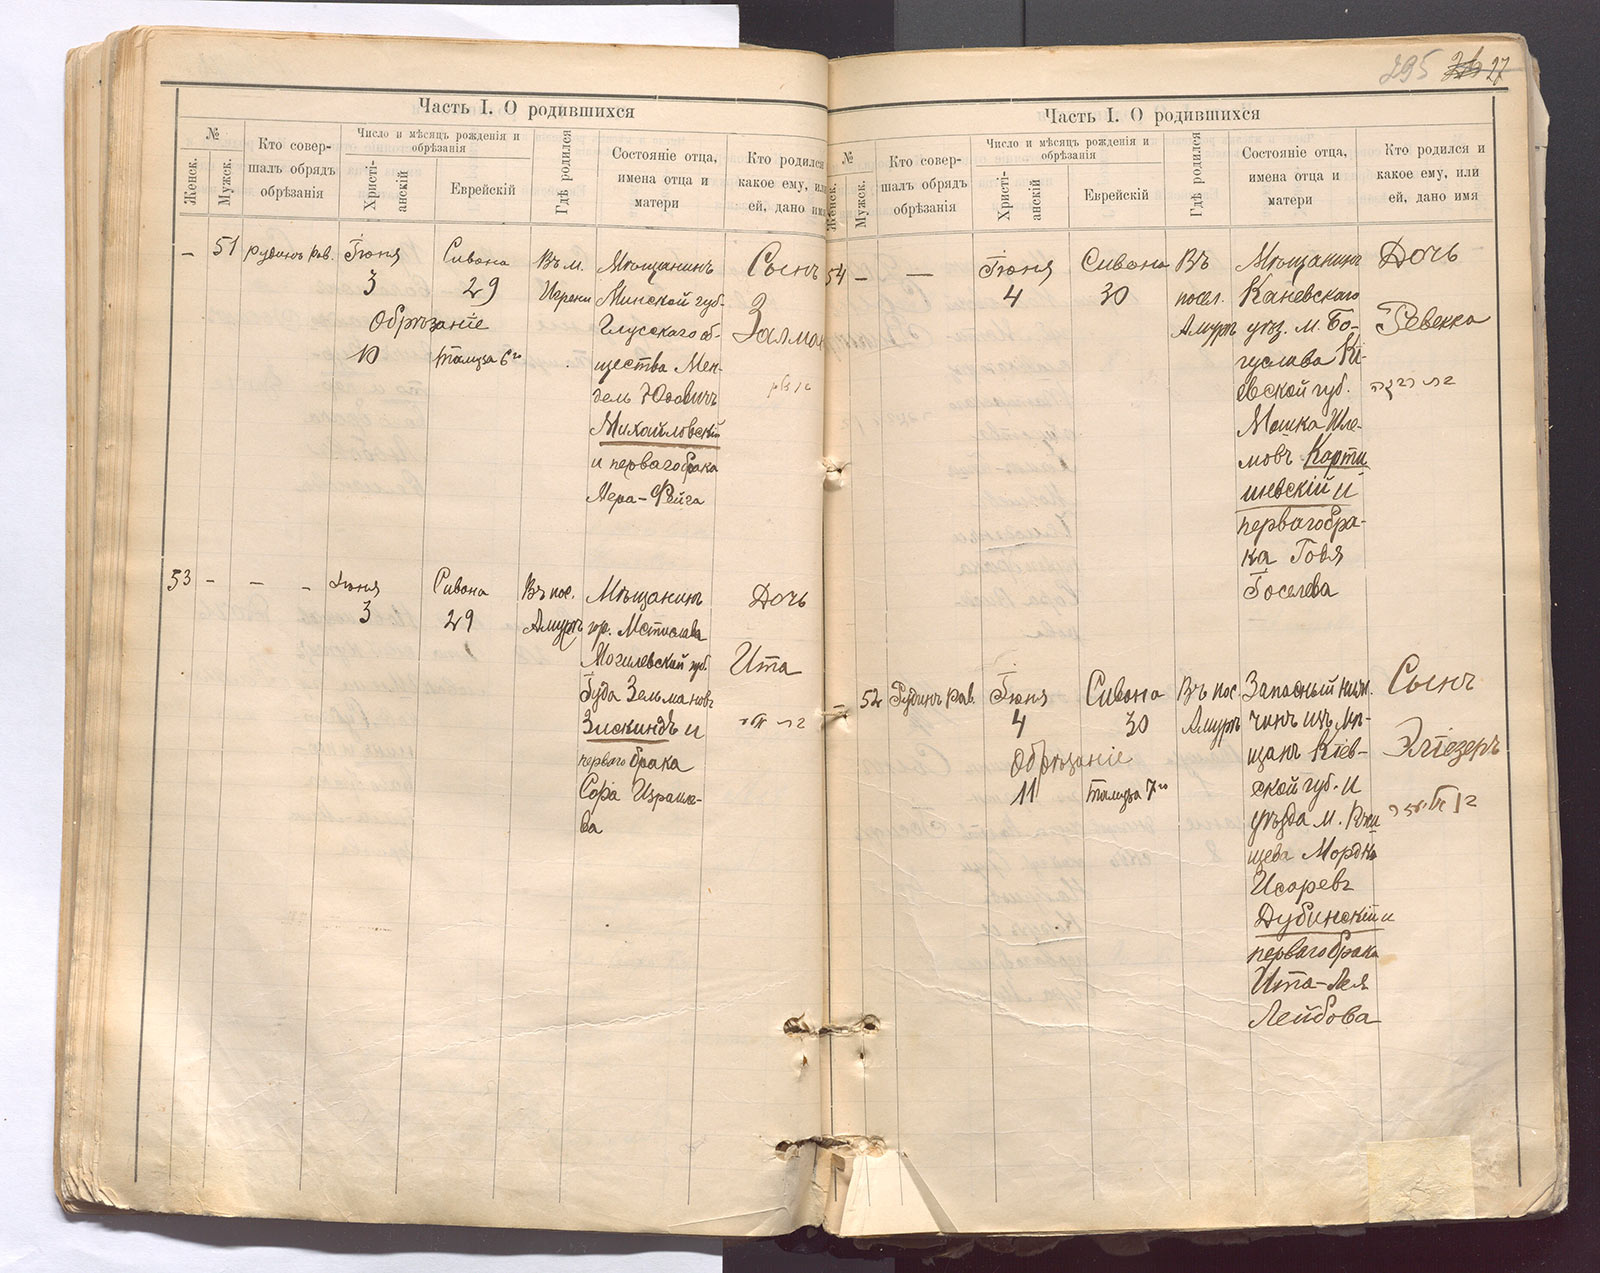 295 27
Часть I. О родившихся
№
Женск.
Мужск.
Кто совер-
шалъ обрядъ
обрѣзанія
Число и мѣсяцъ рожденія и
обрѣзанія
Христі-
анскій
Еврейскій
Гдѣ родился
Состояніе отца,
имена отца и
матери
Кто родился
какое ему, или
ей, дано имя
– 51 Рудинъ Рав.
Іюня
3
Обрѣзаніе
10
Сивона
29
Тамуза 6го
Въ м.
Игрени
Мѣщанинъ
Минской губ.
Глусскаго об-
щества Мен-
дель Юдовичъ
Михайловскій
и перваго брака
Мера-Фейга
Сынъ
Залман
53 – – –
Іюня
3
Сивона
29
Въ пос.
Амуръ
Мѣщанинъ
гор. Мстислава
Могилевской губ.
Іуда Зельмановъ
Зискиндъ и
перваго брака
Сора Израиле-
ва
Дочь
Ита
Часть I. О родившихся
№
Женск.
Мужск.
Кто совер-
шалъ обрядъ
обрѣзанія
Число и мѣсяцъ рожденія и
обрѣзанія
Христі-
анскій
Еврейскій
Гдѣ родился
Состояніе отца,
имена отца и
матери
Кто родился и
какое ему, или
ей, дано имя
54 – —
Іюня
4
Сивона
30
Въ
посел.
Амуръ
Мѣщанинъ
Каневскаго
уѣз. м. Бо-
гуслава Кі-
евской губ.
Мошка Шле-
мовъ Карти
шевскій и
перваго бра-
ка Годя
Іоселева
Дочь
Ревекка
בת רבקה
– 52 Рудинъ Рав.
Іюня
4
Обрѣзаніе
11
Сивона
30
Тамуза 7го
Въ пос.
Амуръ
Запасный ниж.
чинъ изъ мѣ-
щанъ Кіев-
ской губ. и
уѣзда м. Ржи
щева Мордко
Исоревъ
Дубинскій и
перваго брака
Ита-Лея
Лейбова
Сынъ
Эліезеръ
בן אליעזר